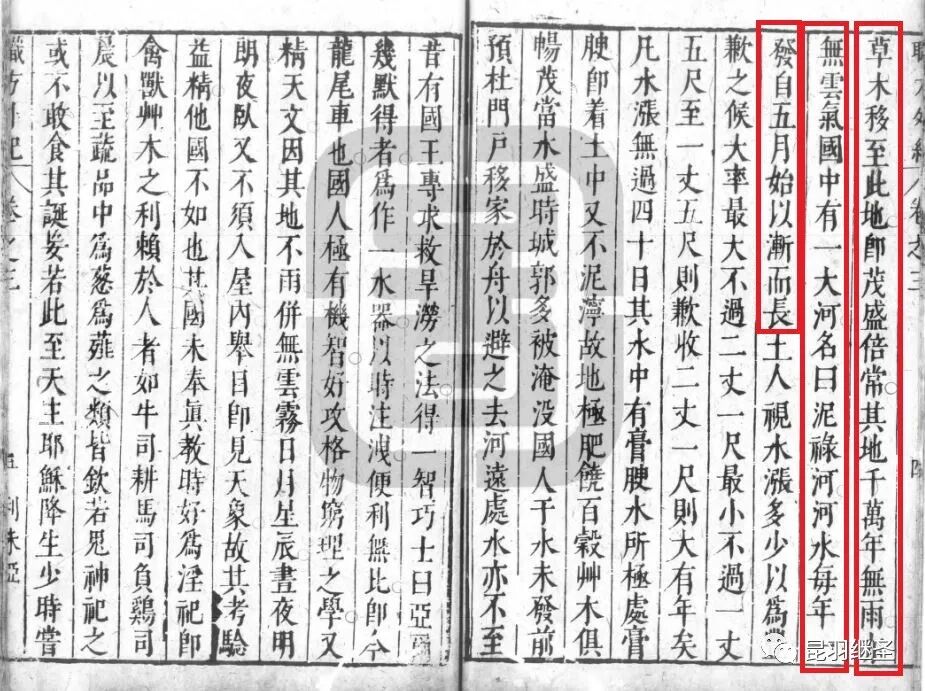 草木移至此地卽茂盛倍常其地千萬年無雨
無雲氣國中有一大河名曰泥祿河河水每年
發自五月始以漸而長土人視水漲多少以爲
歉之候大率最大不過二丈一尺最小不過一丈
五尺至一丈五尺則歉收二丈一尺則大有年矣
凡水漲無過四十日其水中有膏腴水所極處膏
腴卽着土中又不泥濘故地極肥饒百穀艸木俱
暢茂當水盛時城郭多被淹没國人于水未發前
預杜門戸移家於舟以避之去河遠處水亦不至
昔有國王專求救旱澇之法得一智巧士曰亞爾
幾默得者爲作一水器以時注洩便利無比卽今
龍尾車也國人極有機智好攻格物窮理之學又
精天文因其地不雨併無雲霧日月星辰晝夜明
朗夜臥又不須入屋内舉目卽見天象故其考驗
益精他國不如也其國未奉眞教時好爲淫祀卽
禽獸艸木之利賴於人者如牛司耕馬司負鷄司
晨以至蔬品中爲葱爲薤之類皆欽若鬼神祀之
或不敢食其誕妄若此至天主耶穌降生少時嘗
職方外紀 卷之三 利未亞
昆羽继圣